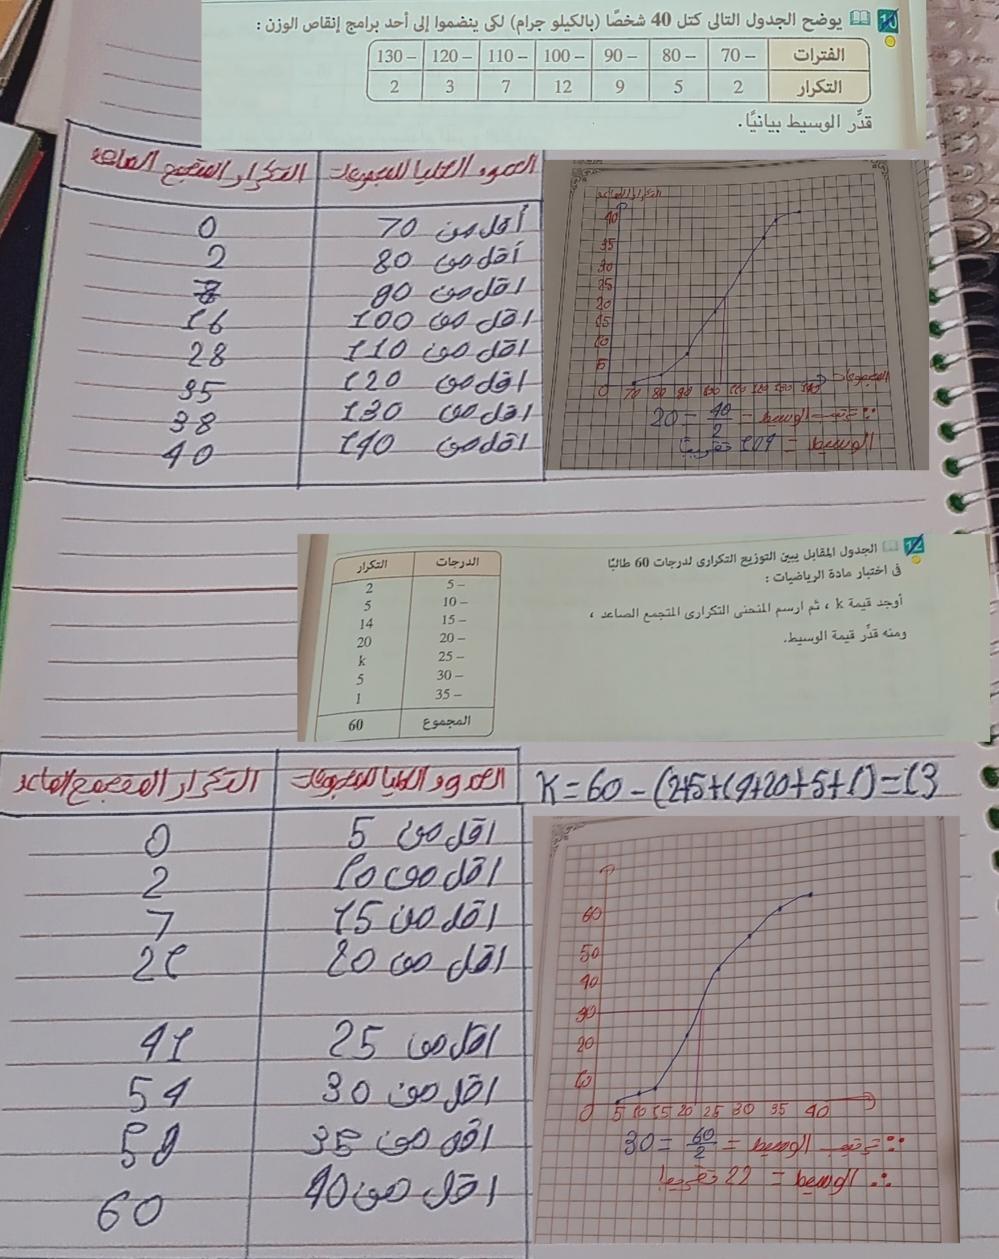 10 يوضح الجدول التالى كتل 40 شخصًا (بالكيلو جرام) لكى ينضموا إلى أحد برامج إنقاص الوزن :
الفترات 70 – 80 – 90 – 100 – 110 – 120 – 130 –
التكرار 2 5 9 12 7 3 2
قدِّر الوسيط بيانيًا.
الحدود العليا للمجموعات التكرار المتجمع الصاعد
أقل من 70 0
أقل من 80 2
اقل من 90
اقل من 100 16
اقل من 110 28
اقل من 120 35
اقل من 130 38
اقل من 140 40
40
35
30
25
20
15
10
5
0 70 80 90 100 110 120 130 140 المجموعات
∵ ترتيب الوسيط = 40/2 = 20
الوسيط = 104 تقريبا
12 الجدول المقابل يبين التوزيع التكرارى لدرجات 60 طالبًا
فى اختبار مادة الرياضيات :
أوجد قيمة k ، ثم ارسم المنحنى التكرارى المتجمع الصاعد ،
ومنه قدِّر قيمة الوسيط.
الدرجات التكرار
5 – 2
10 – 5
15 – 14
20 – 20
25 – k
30 – 5
35 – 1
المجموع 60
K = 60 - (2+5+14+20+5+1) = 13
الحدود العليا للمجموعات التكرار المتجمع الصاعد
اقل من 5 0
اقل من 10 2
اقل من 15 7
اقل من 20 21
اقل من 25 41
اقل من 30 54
اقل من 35 59
اقل من 40 60
60
50
40
30
20
10
0 5 10 15 20 25 30 35 40
∵ ترتيب الوسيط = 60/2 = 30
∴ الوسيط = 22 تقريبا